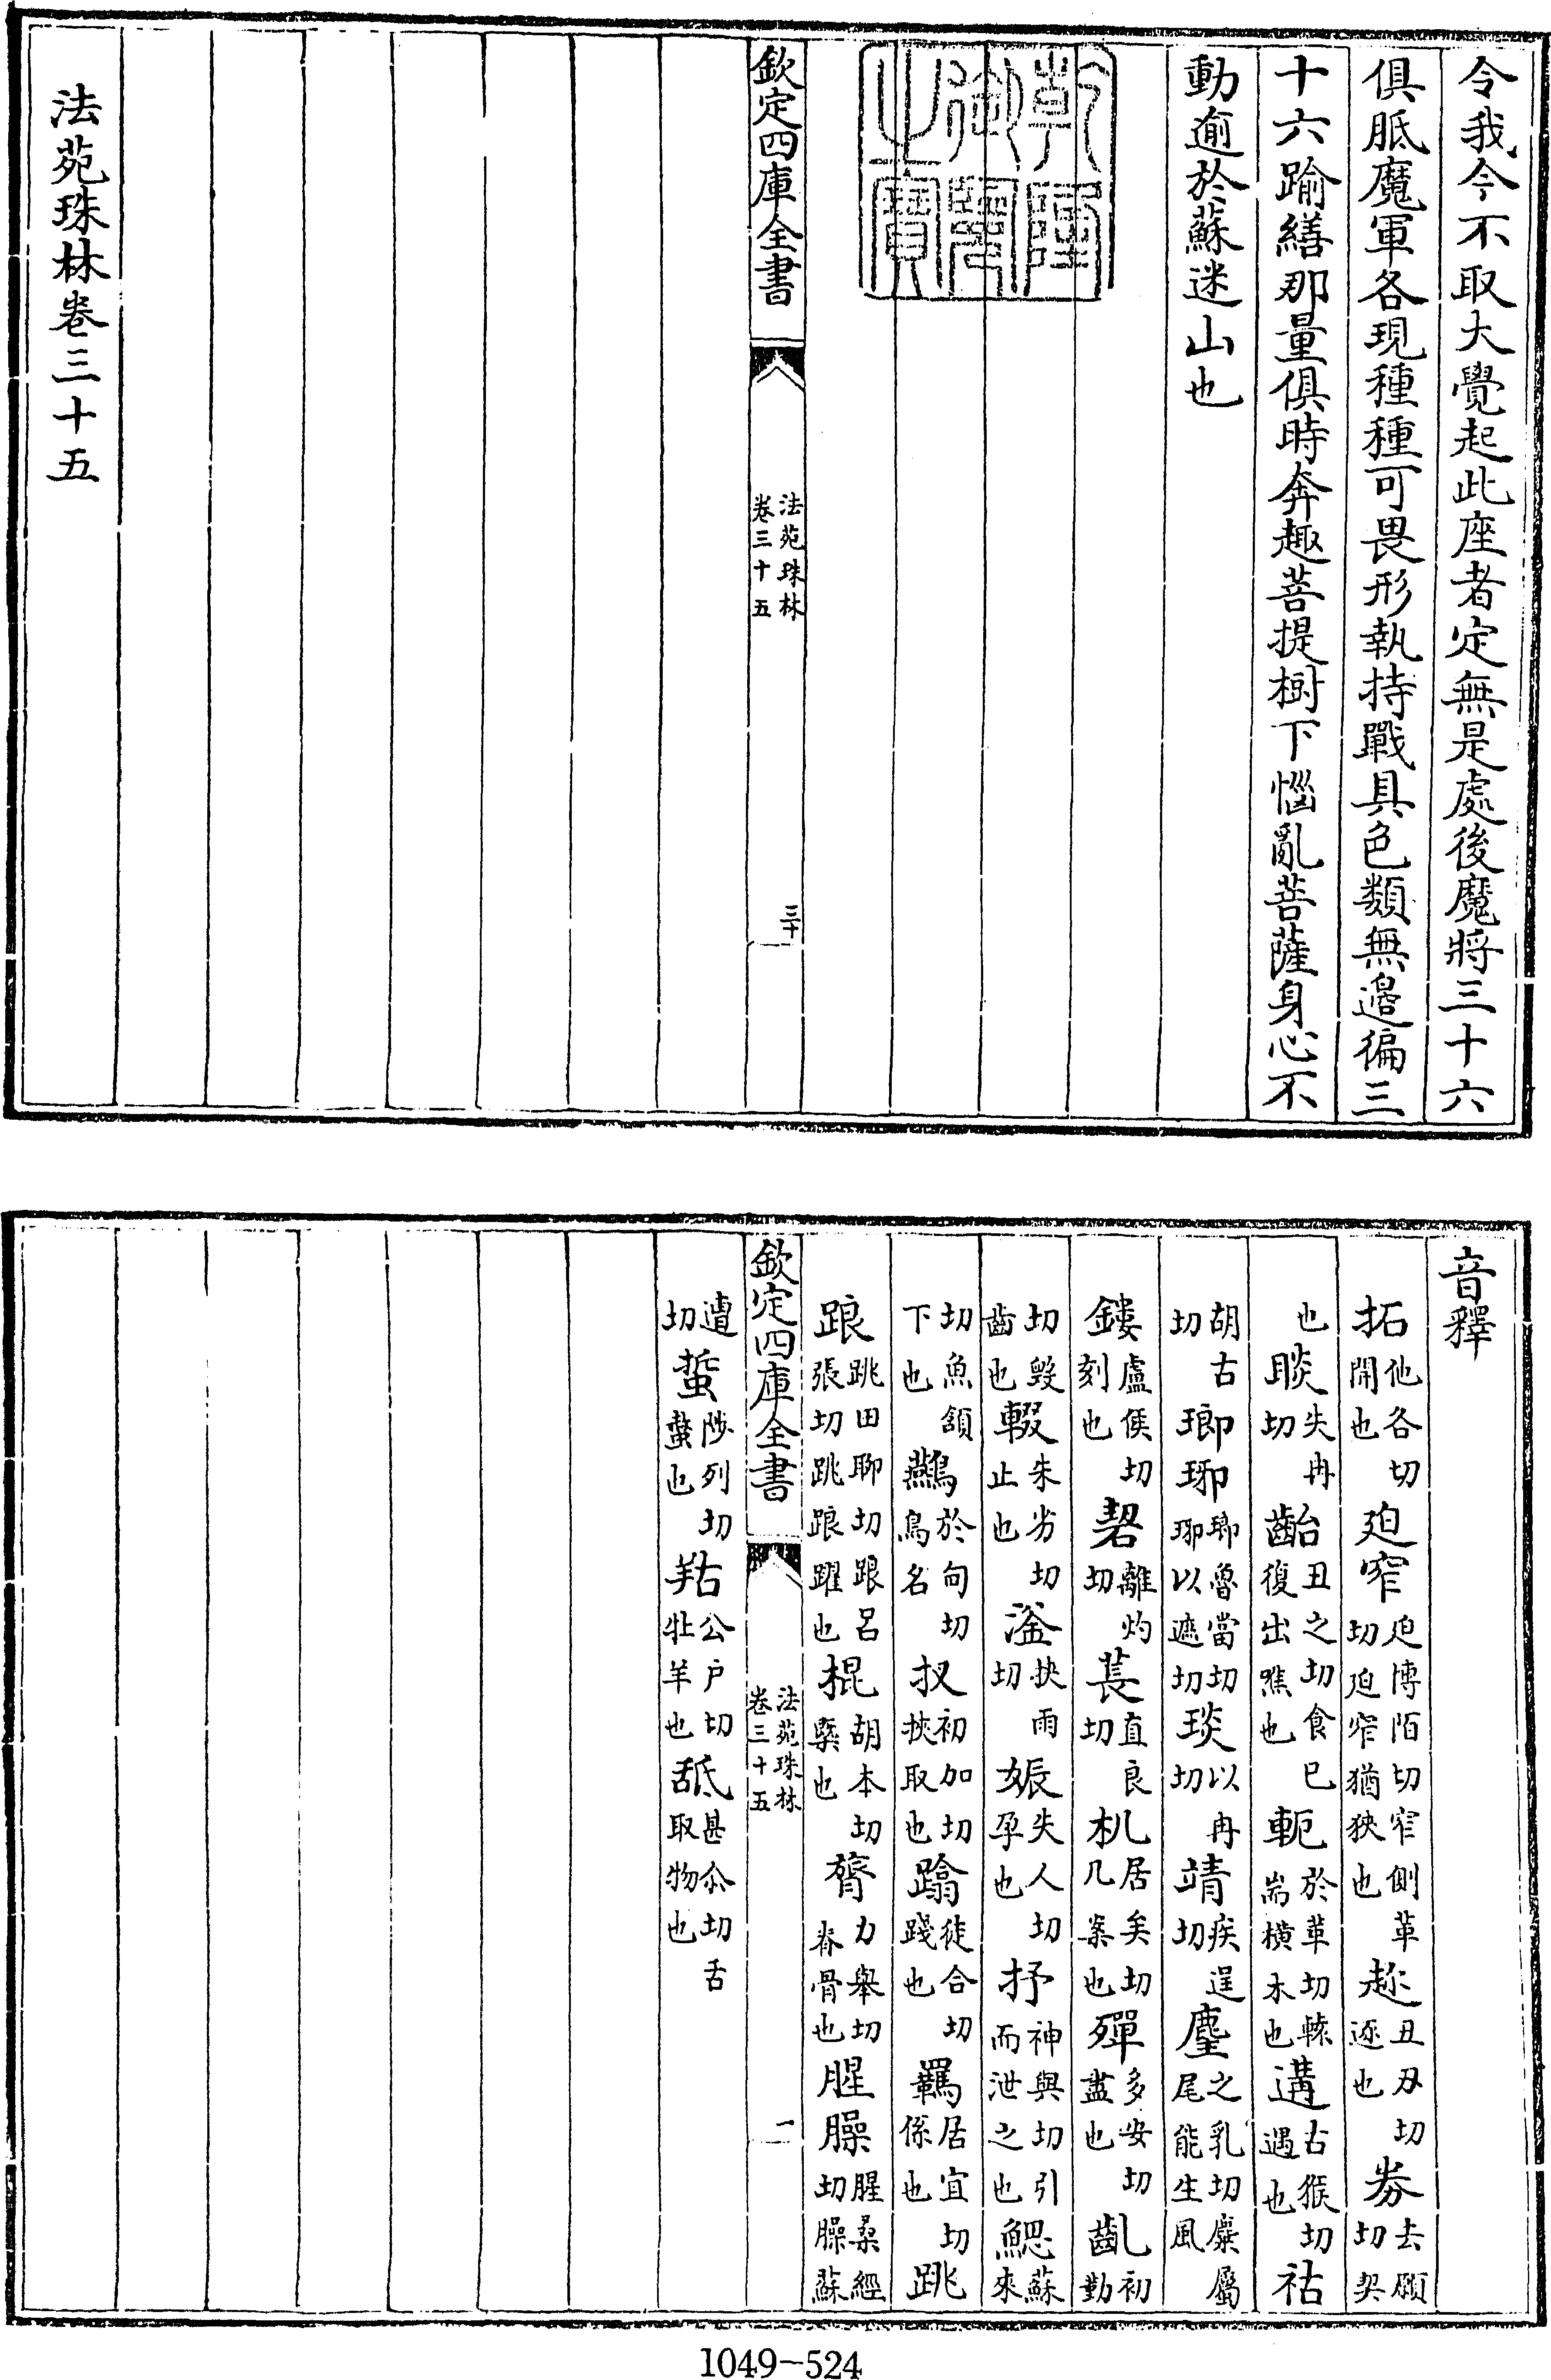 令我今不取大覺起此座者定無是處後魔將三十六
俱胝魔軍各現種種可畏形執持戰具色類無邊徧三
十六踰繕那量俱時奔趣菩提樹下惱亂菩薩身心不
動逾於蘇迷山也
乾隆御覽之寶
欽定四庫全書
法苑珠林
卷三十五
三十
法苑珠林卷三十五
音釋
拓他各切開也廹窄廹博陌切窄側革切廹窄猶狹也趂丑刄切逐也劵去願切契
也睒失冉切齝丑之切食已復出噍也軛於革切轅耑橫木也遘古猴切遇也祜
胡古切瑯琊瑯魯當切琊以遮切琰以冉切靖疾逞切麈之乳切麋屬尾能生風
鏤盧侯切刻也䂮離灼切萇直良切机居矣切几案也殫多安切盡也齓初勤
切毀齒也輟朱劣切止也滏扶雨切娠失人切孕也抒神與切引而泄之也鰓蘇來
切魚頷下也鷰於甸切鳥名扠初加切挾取也蹹徒合切踐也羈居宜切係也跳
踉跳田聊切踉呂張切跳踉躍也棍胡本切槩也膂力舉切脊骨也腥臊腥桑經切臊蘇
欽定四庫全書
法苑珠林
卷三十五
一
遭切蜇陟列切螫也羖公戶切牡羊也舐甚尒切舌取物也
1049-524